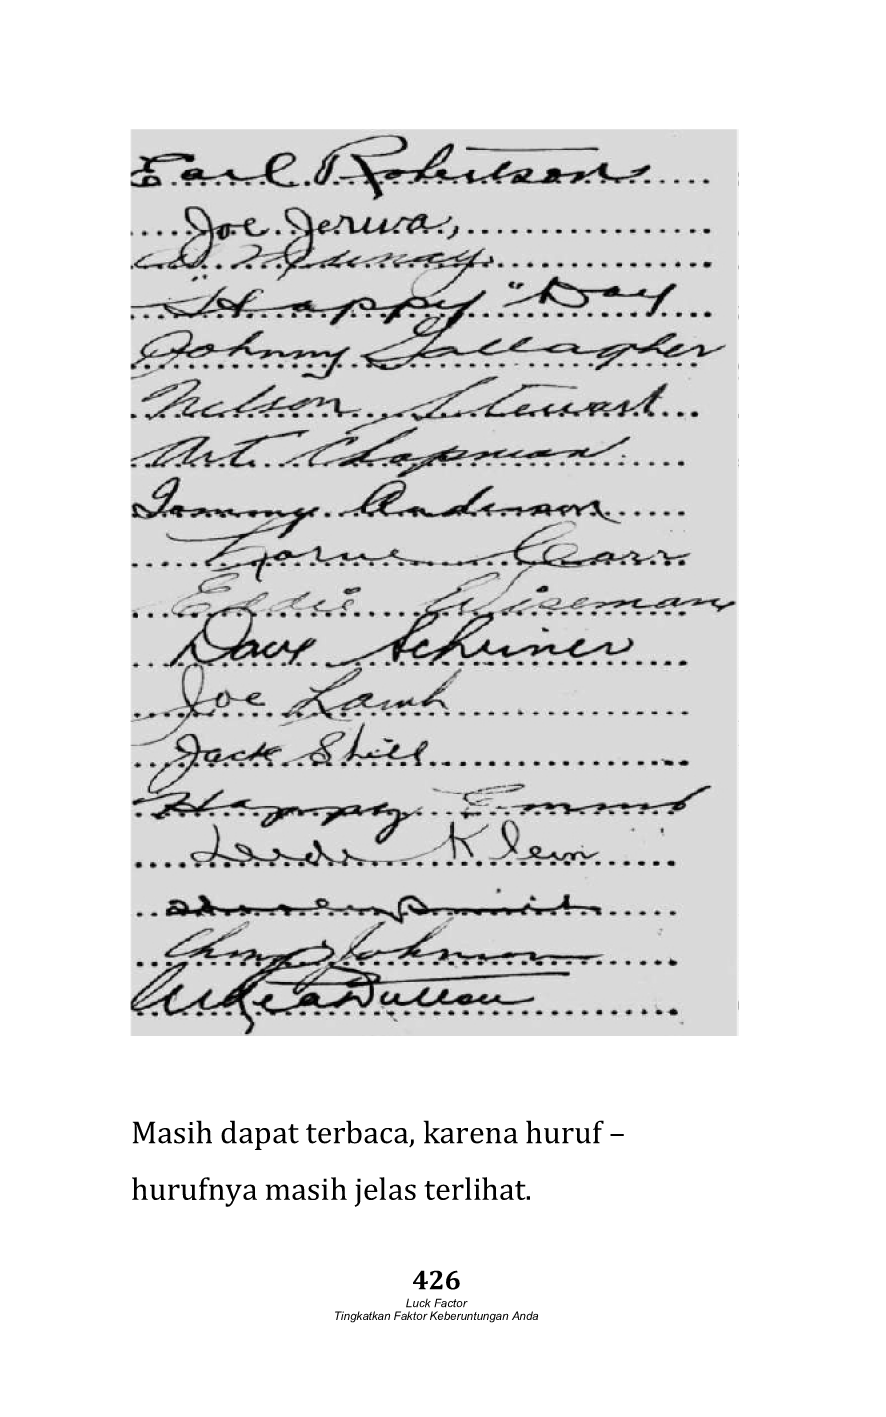 Earl Robertson
Joe Jerwa,
Al Murray
"Happy" Day
Johnny Gallagher
Nelson Stewart
Art Chapman
Tommy Anderson
Lorne Carr
Eddie Wiseman
Dave Schriner
Joe Lamb
Jack Shill
Happy Emms
Klein
Johnson
Dutton
Masih dapat terbaca, karena huruf –
hurufnya masih jelas terlihat.
426
Luck Factor
Tingkatkan Faktor Keberuntungan Anda